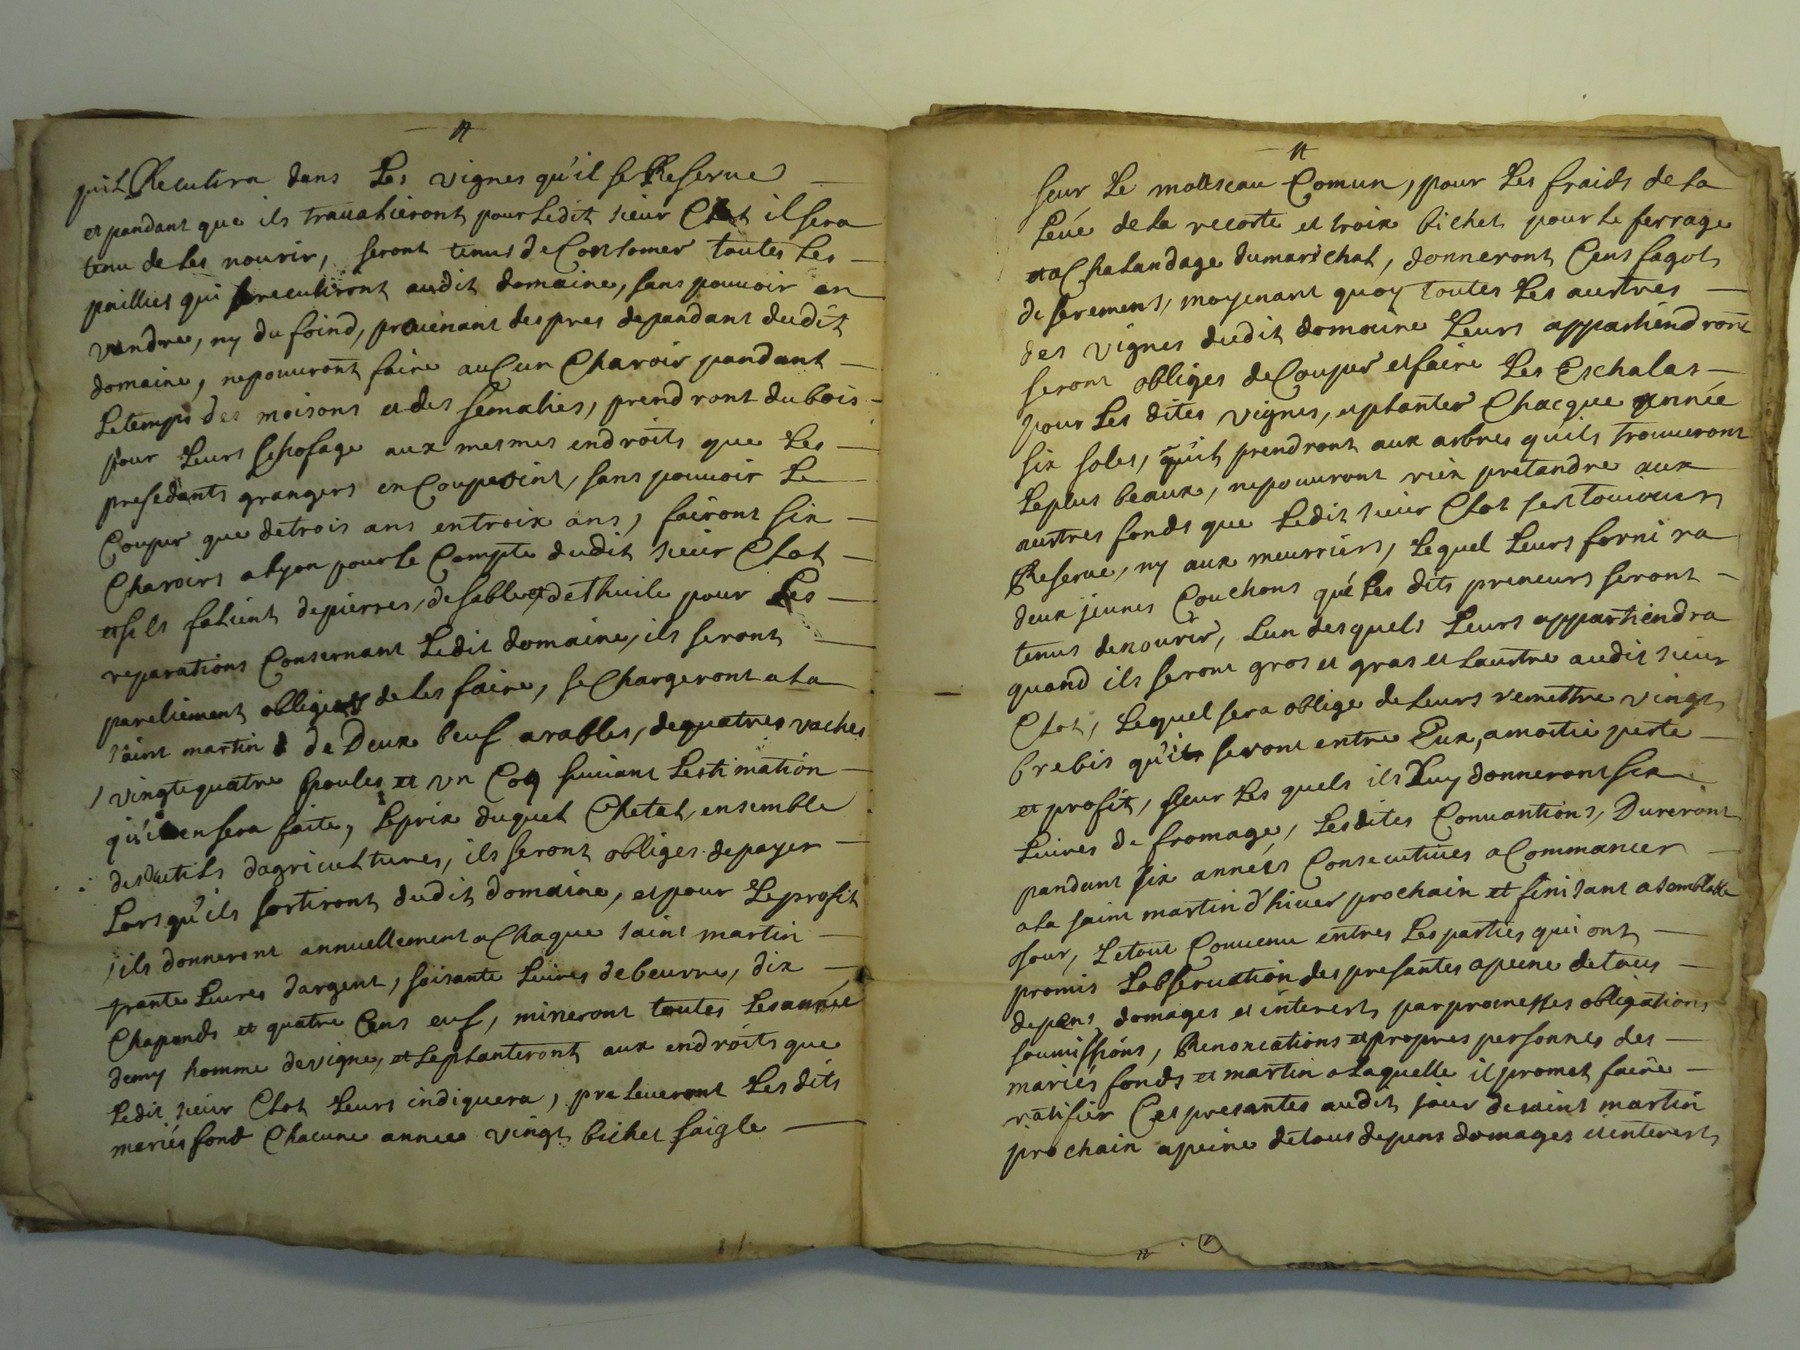 quil Recutira dens Les vignes qu'il se Reserue
et pandant que ils trauahieront pour Ledit sieur Clot il sera
tenu de Les nourir, seront tenus de Consomer toutes Les
paillies qui se recutiront audit domaine, sans pouuoir en
vandre, ny du foind, prouenant des pres depandant dudit
domaine, ne pouuront faire auCun Charoir pandant
Le temps des moisons et des semalies, prendront du bois
pour Leurs schofage aux mesmes endroits que Les
presedants grangers en Coupoint, sans pouuoir Le
Couper que de trois ans en troix ans, fairont six
Charoirs a Lyon pour Le Compte dudit sieur Clot
et sils falient de pierres, de sable et de Thuile pour Les
reparations Consernant Ledit domaine, ils seront
pareliement obliges de Les faire, se Chargeront a La
saint martin de Deux beuf arables, de quatres vaches
vingtequatre poules et vn Coq suuiant Lestimation
qui en sera faite, Le prix duquel Chetal, ensemble
des outils dagricultures, ils seront obliges de payer
Lors qu'ils sortiront dudit domaine, et pour Le profit
ils donneront annuellement a Chaque saint martin
trante Liures dargent, soisante Liures de beurre, dix
Chaponds et quatre Cens euf, mineront toutes Les année
demy homme de vigne, et Le planteront aux endroits que
Ledit sieur Clot Leurs indiquera, preleueront Les dits
mariés fond Chacune annee vingt bichet saigle
seur Le molsseau Comun, pour Les fraids de La
Leué de La recorte et troix bichet pour Le ferrage
et aChalandage du marichal, donneront Cens fagots
de serement, moyenant quoy toutes Les austres
des vignes dudit domaine Leurs appartiendront
seront obliges de Couper et faire Les Eschalas
pour Les dites vignes, et planter Chacque année
six soles, quil prendront aux arbres quils trouueront
Le plus beaux, ne pouuront rien pretandre aux
austres fonds que Ledit sieur Clot sest toujours
Reserue, ny aux meurriers, Lequel Leurs fornira
deux jeunes Couchons que Les dits preneurs seront
tenus de nourir, Lun desquels Leurs appartiendra
quand ils seront gros et gras et Laustre audit sieur
Clot, Lequel sera oblige de Leurs remettre vingt
brebis qu'ils seront entre Eux, a moitie perte
et profit, seur Les quels ils Luy donneront six
Liures de fromage, Les dites Conuantions, Dureront
pandant six années Consecutiues a Commancer
a La saint martin d'hiuer prochain et finisant a semblable
Jour, Le tout Conuenu entres Les parties qui ont
promis Lobseruation des presantes a peine de tous
depens domages et interests par promesses obligations
soumissions, Renonciations et propres personnes des
mariés fonds et martin a Laquelle il promet faire
ratifier Ces presantes audit jour de saint martin
prochain a peine de tous depens domages et interests